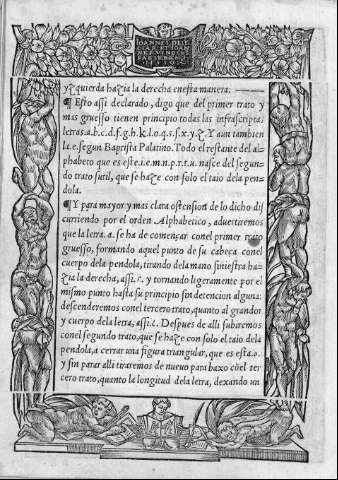 yzquierda hazia la derecha enesta manera.
¶ Esto assi declarado, digo que del primer trato y
mas gruesso tienen principio todas las infrascripta
letras: a.b.c.d.f.g.h.k.l.o.q.s.f.x.y.z. Y aun tambien
la .e. segun Baptista Palatino. Todo el restante del al-
phabeto que es este. i.e.m.n.p.r.t.u. nasce del segun-
do trato sutil, que se haze con solo el taio dela pen-
dola.
¶ Y para mayor y mas clara ostension de lo dicho di-
scurriendo por el orden Alphabetico, aduertiremos
que la letra .a. se ha de començar conel primer trato
gruesso, formando aquel punto de su cabeça conel
cuerpo dela pendola, tirando dela mano siniestra ha-
zia la derecha, assi. y tornando ligeramente por el
mismo punto hasta su principio sin detencion alguna:
descenderemos conel tercero trato, quanto al grandor
y cuerpo dela letra, assi. Despues de alli subiremos
conel segundo trato, que se haze con solo el taio dela
pendola, a cerrar una figura triangular, que es esta.
y sin parar alli tiraremos de nueuo para baxo cõel ter-
cero trato, quanto la longitud dela letra, dexando un